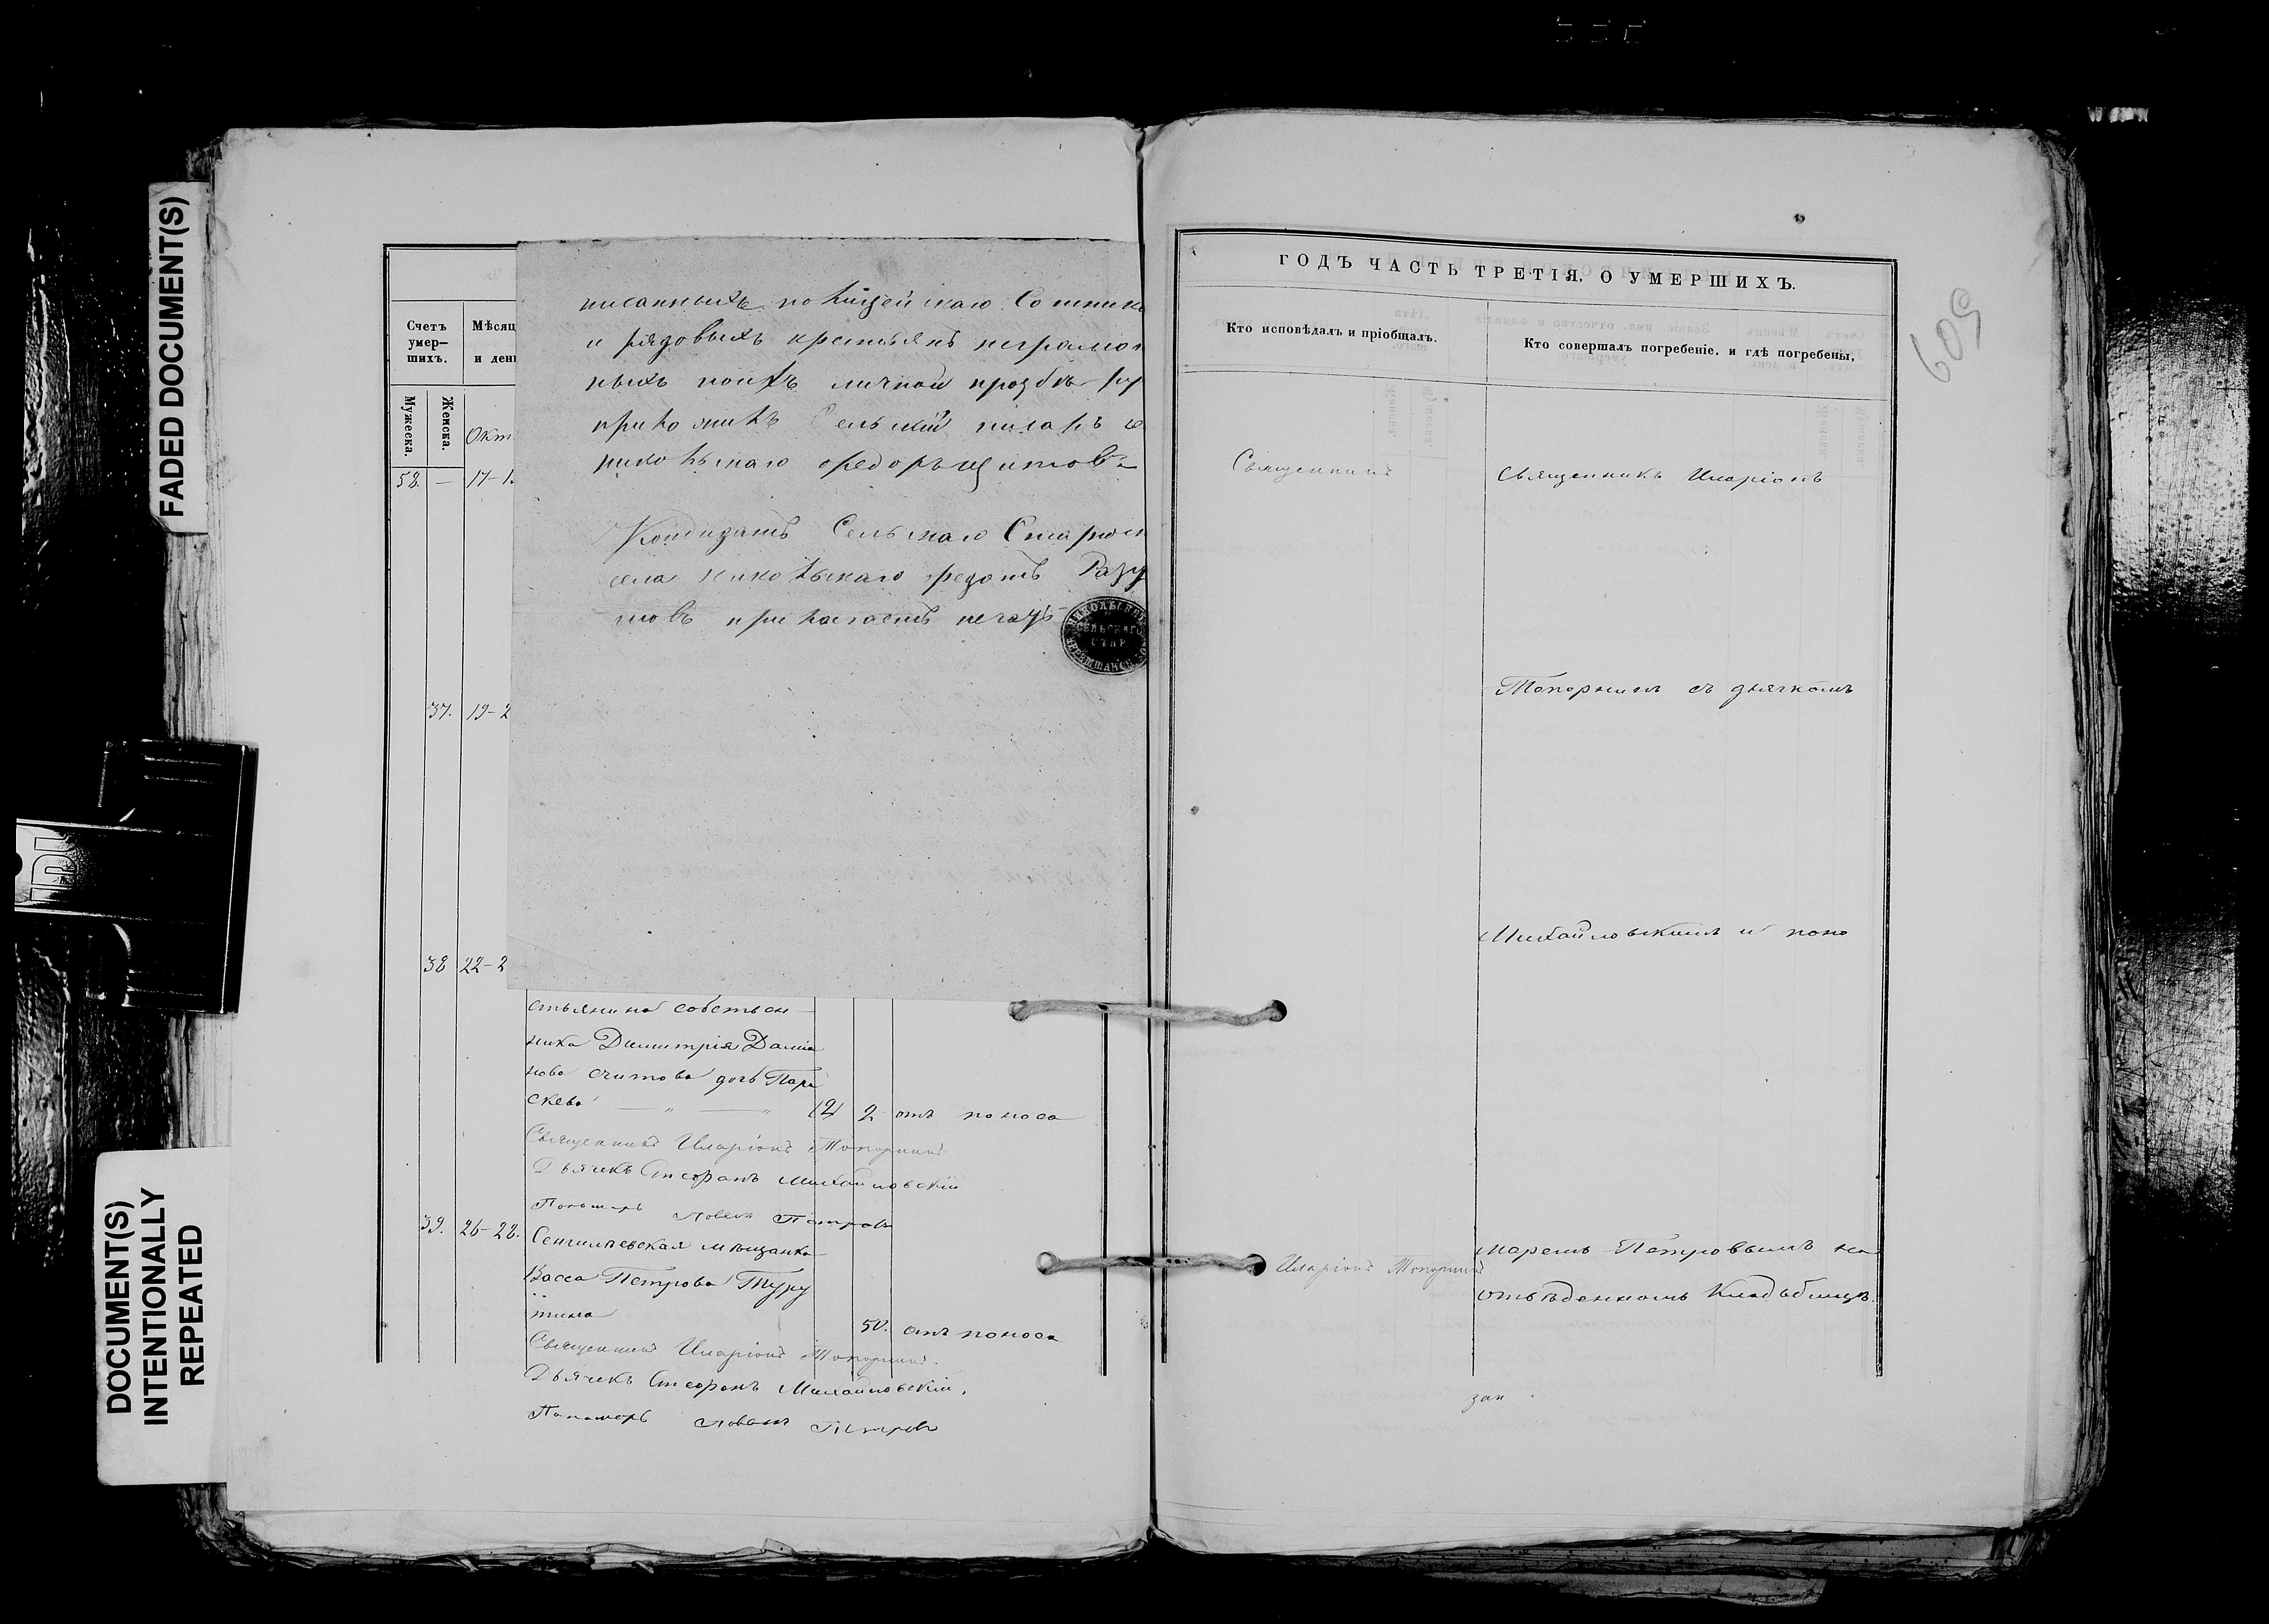 FADED DOCUMENT(S)
DOCUMENT(S)
INTENTIONALLY
REPEATED
Счетъ
умер-
шихъ.
Мѣсяц
и ден
Мужеска.
Женска.
Окт
58. — 17-1
37. 19-2
38 22-2
писанныхъ полицейскаго Сотника
и рядовыхъ крестьянъ неграмот
ныхъ поихъ личной прозбѣ ру
приложилъ Сельскій писарь с
никольскаго Федоръ Щитовъ
Кондидатъ Сельскаго Старост
села никольскаго Федотъ Разу
мовъ прилагаетъ печать
НИКОЛЬСК
СЕЛЬСКАГО
СТАР
ЧЕРЕМШАНСК ВО
стьянина собствен
ника Димитрія Даміа
нова Считова дочь Пара
скева — " — " 2 отъ поноса
Священникъ Иларіонъ Топорнинъ
Дьячекъ Стефанъ Михайловскій
Пономарь Петровъ
39. 26-28. Сенгилѣевская мѣщанка
Васса Петрова Туру
тина 50. отъ поноса
Священникъ Иларіонъ Топорнинъ.
Дьячекъ Стефанъ Михайловскій.
Пономарь Петровъ
ГОДЪ ЧАСТЬ ТРЕТІЯ, О УМЕРШИХЪ.
Кто исповѣдалъ и пріобщалъ.
Кто совершалъ погребеніе, и гдѣ погребены,
609
Священникъ
Священникъ Иларіонъ
Топорнинъ съ дьячкомъ
Михайловскимъ и поно
Иларіонъ Топорнинъ
маремъ Петровымъ на
отведенномъ Кладбищѣ.
зап